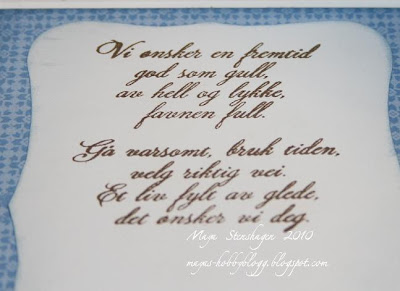 Vi ønsker en fremtid
god som gull,
av hell og lykke,
favnen full.
Gå varsomt, bruk tiden,
velg riktig vei.
Et liv fylt av glede,
det ønsker vi deg.
Maja Stenshagen 2010
majas-hobbyblogg.blogspot.com